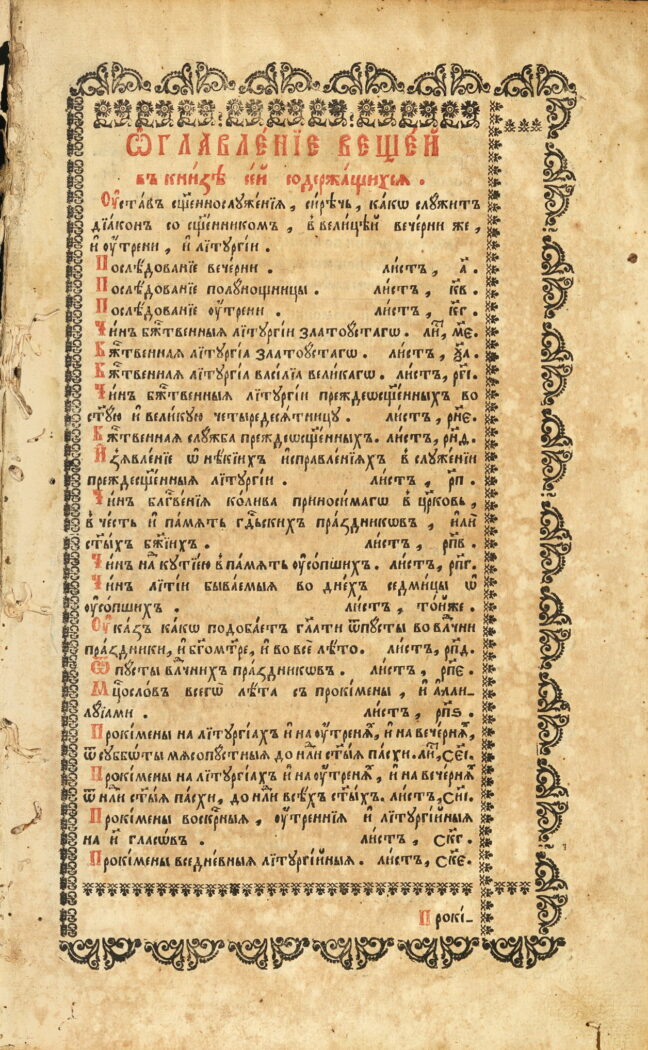 Ѡ҆ГЛАВЛЕ́НЇЕ ВЕЩЕ́Й
въ кни́зѣ се́й содержа́щихсѧ .
Оу҆ста́въ сщ҃еннослꙋже́нїѧ , си́рѣчь , ка́кѡ слꙋ́житъ
дїа́конъ со сщ҃е́нникомъ , в̾ вели́цѣй вече́рни же ,
и҆ оу҆́трени , и҆ лїтꙋргі́и .
Послѣ́дованїе вече́рни . ли́стъ , а҃ .
Послѣ́дованїе полꙋно́щницы . ли́стъ , к҃в .
Послѣ́дованїе оу҆́трени . ли́стъ , к҃г .
Чи́нъ бжⷭ҇твенныѧ лїтꙋргі́и златоꙋ́стагѡ . лиⷭ҇ , м҃є .
Бжⷭ҇твеннаѧ лїтꙋргі́а златоꙋ́стагѡ . ли́стъ , ч҃а .
Бжⷭ҇твеннаѧ лїтꙋргі́а васі́лїа вели́кагѡ . ли́стъ , рг҃і .
Чи́нъ бжⷭ҇твенныѧ лїтꙋргі́и преждеѡсщ҃е́нныхъ во
ст҃ꙋ́ю и҆ вели́кꙋю четыредесѧ́тницꙋ . ли́стъ , рн҃є .
Бжⷭ҇твеннаѧ слꙋ́жба преждеѡсщ҃е́нныхъ . ли́стъ , рн҃д .
И҆з̾ѧвле́нїе ѡ҆ нѣ́кїихъ и҆справле́нїихъ в̾ слꙋже́нїи
преждесщ҃е́нныѧ лїтꙋргі́и . ли́стъ , р҃п .
Чи́нъ блгⷭ҇ве́нїѧ ко́лива приноси́магѡ в̾ цр҃ковь ,
в̾ че́сть и҆ па́мѧть гдⷭ҇ьскихъ пра́здникѡвъ , и҆лѝ
ст҃ы́хъ бж҃їихъ . ли́стъ , рп҃в .
Чи́нъ на̀ кꙋтїе́ю в̾ па́мѧть оу҆со́пшихъ . ли́стъ , рп҃г .
Чи́нъ лїті́и быва́емыѧ во дне́хъ седми́цы ѡ҆
оу҆со́пшихъ . ли́стъ , то́йже .
Оу҆ка́зъ ка́кѡ подоба́етъ гл҃а́ти ѿпꙋ́сты во влⷣчни
пра́здники , и҆ бг҃ома́тре , и҆ во всѐ лѣ́то . ли́стъ , рп҃д .
Ѿпꙋ́сты влⷣчнихъ пра́здникѡвъ . ли́стъ , рп҃є .
Мцⷭ҇осло́въ всегѡ̀ лѣ́та съ прокі́мены , и҆ а҆ли-
лꙋ́їами . ли́стъ , рп҃ѕ .
Прокі́мены на лїтꙋргі́ахъ и҆ на оу҆́тренѧⷯ , и҆ на вече́рнѧⷯ ,
ѿ сꙋббѡ́ты мѧсопꙋ́стныѧ до нⷣли ст҃ы́ѧ па́схи . лиⷭ҇ , сє҃і .
Прокі́мены на лїтꙋргі́ахъ и҆ на оу҆́тренѧⷯ , и҆ на вече́рнѧⷯ
ѿ нⷣли ст҃ы́ѧ па́схи , до нⷣли всѣ́хъ ст҃ы́хъ . ли́стъ , си҃і .
Прокі́мены воскрⷭ҇ныѧ , оу҆́треннїѧ и҆ лїтꙋргі́йныѧ
на и҃ гла́сѡвъ . ли́стъ , ск҃г .
Прокі́мены вседне́вныѧ лїтꙋргі́йныѧ . ли́стъ , ск҃є .
Прокі-